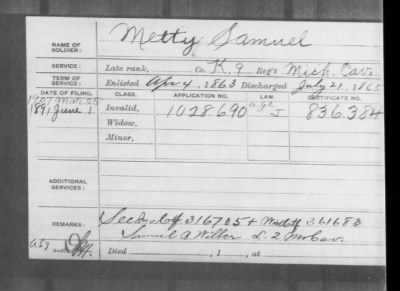 NAME OF SOLDIER: Metty, Samuel
SERVICE: Late rank, Co. K. 9 Reg't Mich. Cav.
TERM OF SERVICE: Enlisted Apr 4, 1863 Discharged July 21, 1865
DATE OF FILING. CLASS. APPLICATION NO. LAW. CERTIFICATE NO.
1891 June 1 Invalid, 1028690 836384
Widow,
Minor,
ADDITIONAL SERVICES:
REMARKS: See 316705 + 361683
Samuel B Wilber L. 2
Died , 1 , at